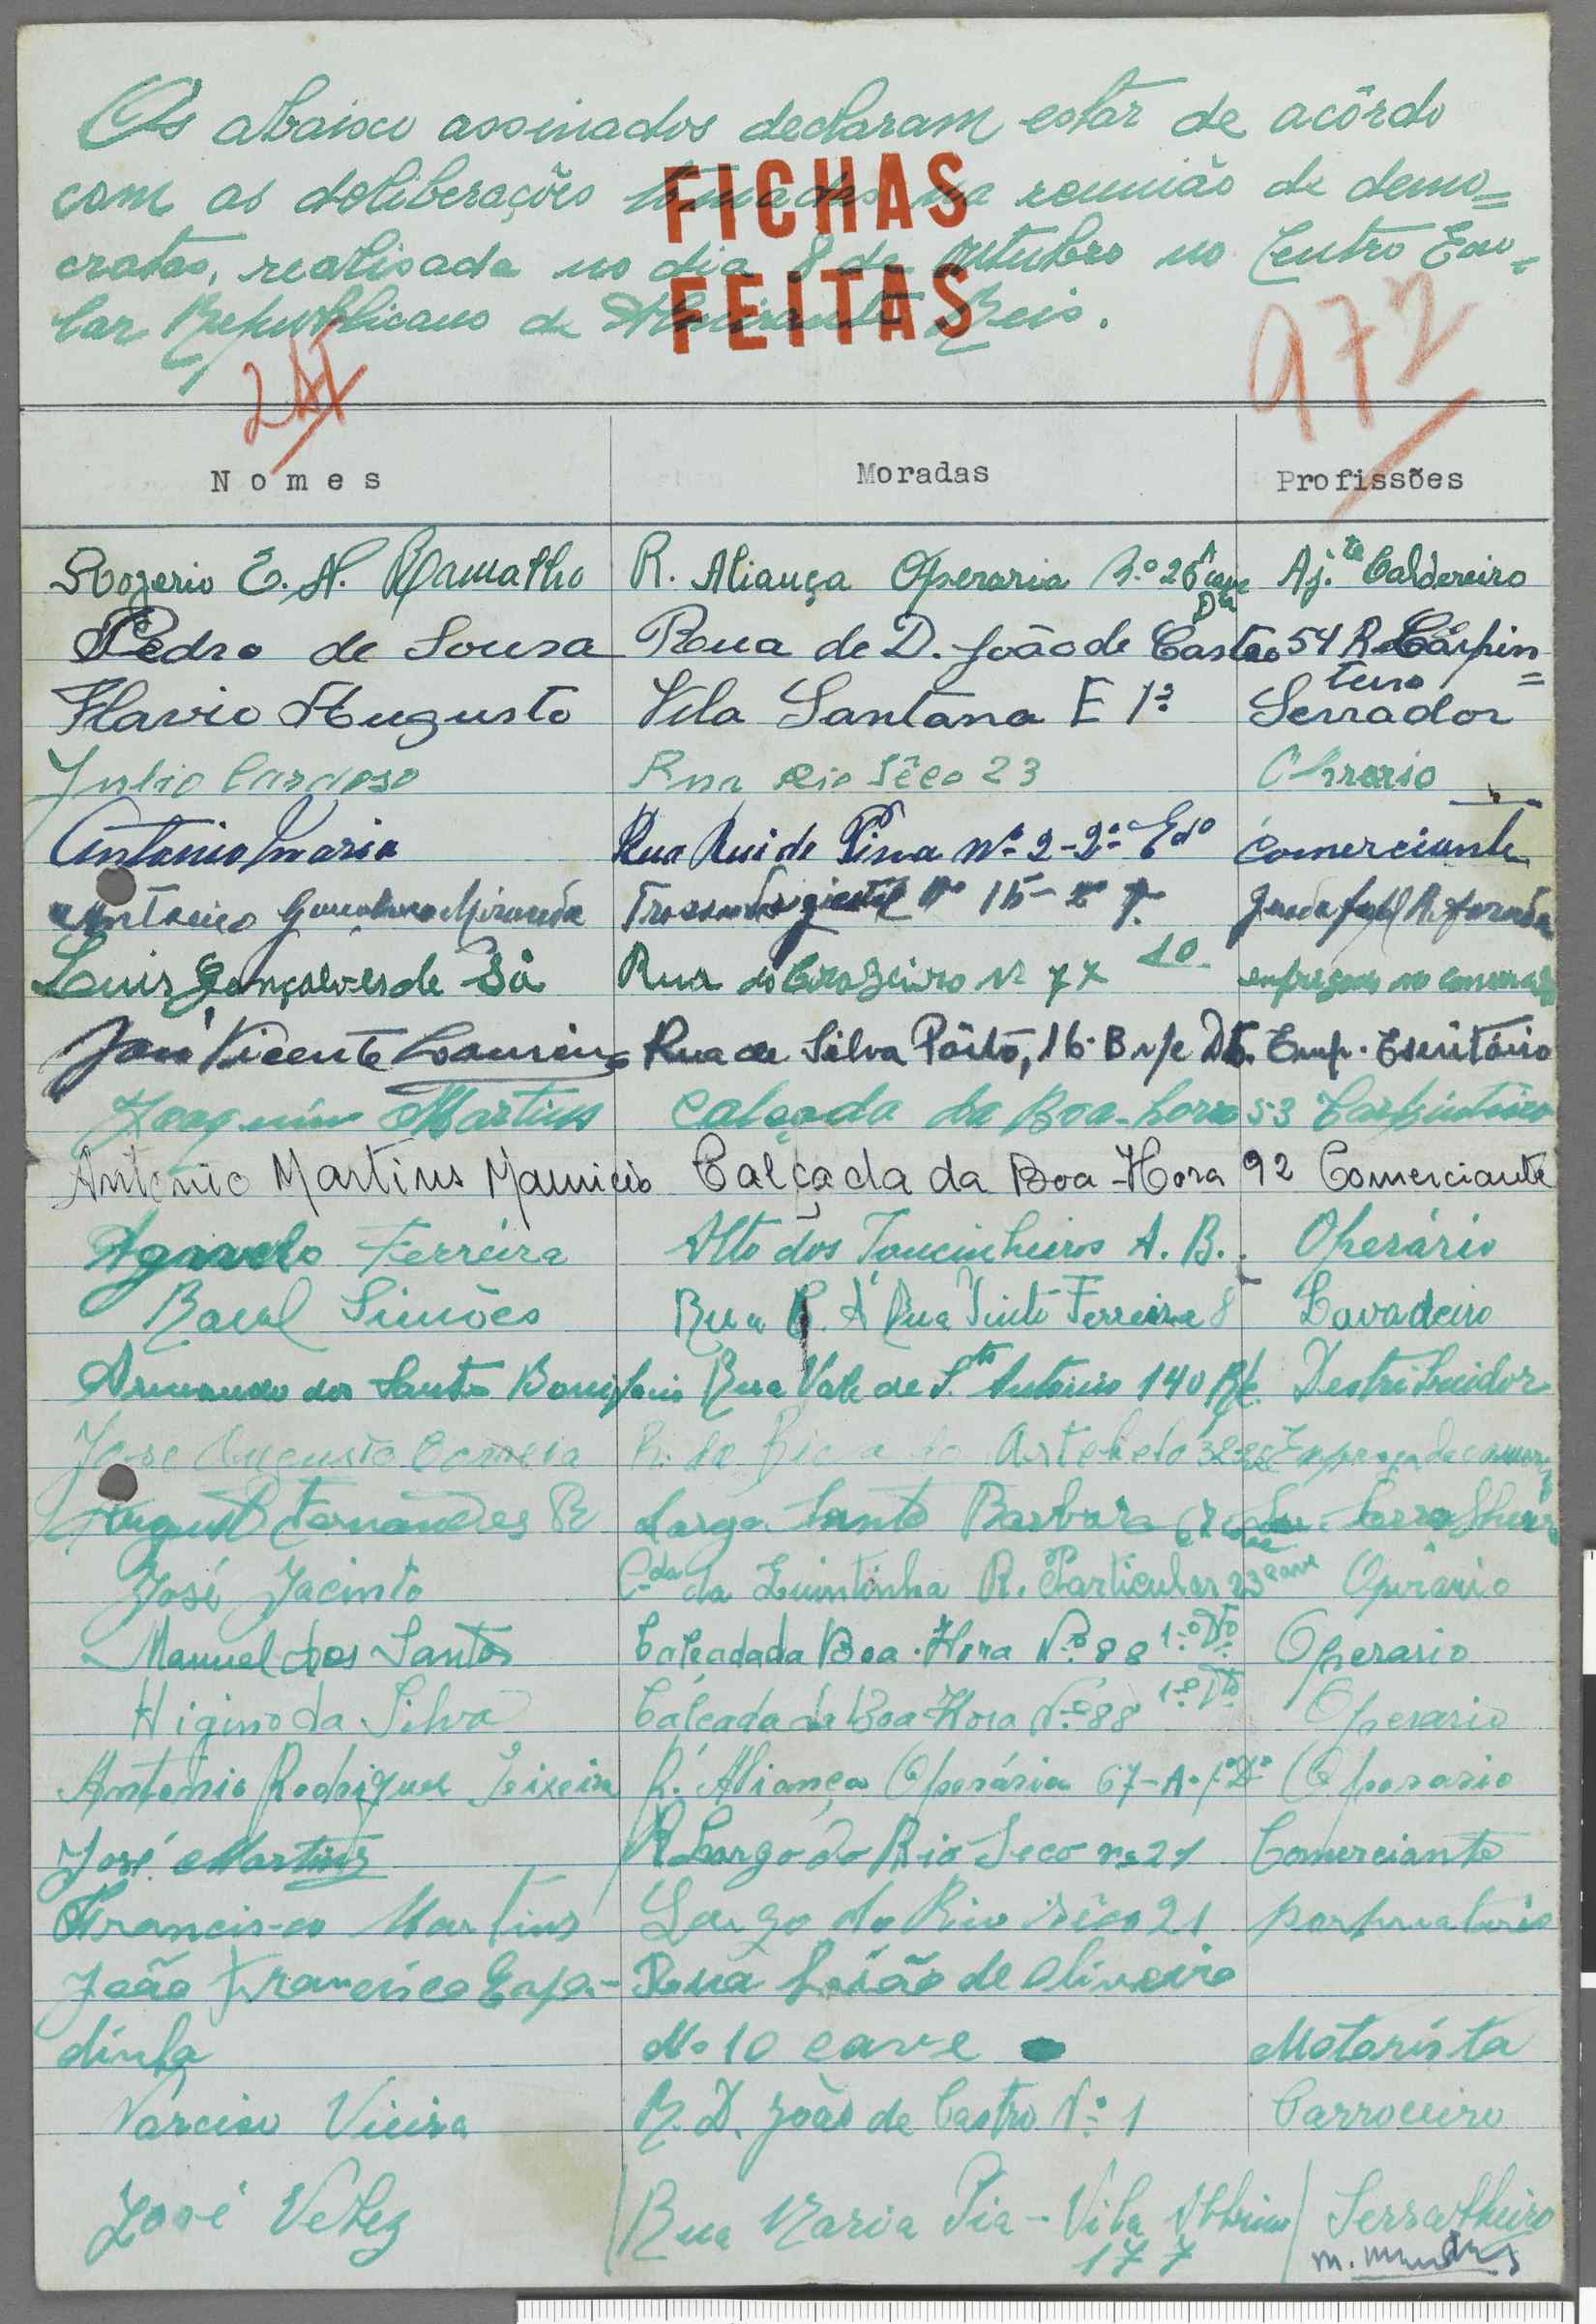 Os abaixo assinados declaram estar de acôrdo
com as deliberações tomadas na reunião de demo=
cratas, realisada no dia 8 de Outubro no Centro Esco=
lar Republicano de Almirante Reis.
FICHAS
FEITAS
972
Nomes Moradas Profissões
Rogerio E. N. Ramalho R. Aliança Operaria N.º 26 A cave Dta Aj.te Caldereiro
Pedro de Sousa Rua de D. João de Castro 54 R Carpin=
teiro
Flavio Augusto Vila Santana E 1º Serrador
Julio Cardoso Rua Rio Sêco 23 Oprario
Antonio Maria Rua Rui de Pina Nº 2-2º Edo Comerciante
Antonio Gonçalves Miranda Nº 15
Luis Gonçalves de Sá Rua do Cruzeiro Nº 77 10 empregado no comercio
José Vicente Loureiro Rua de Silva Pôrto, 16-B r/c Dt. Emp. Escritório
Joaquim Martins Calçada da Boa-hora 53 Carpinteiro
António Martins Mauricio Calçada da Boa-Hora 92 Comerciante
Agnelo Ferreira Alto dos Toucinheiros A. B. Operário
Raul Simões Rua C. Á Rua Pinto Ferreira 8 Lavadeiro
Armando dos Santos Bonifacio Rua Vale de S.to Antonio 140 R/c. Destribuidor
José Augusto Correia R. da Bica do 32 Empregado comercio
Augusto Fernandes R Largo Santa Barbara Serralheiro
José Jacinto C.da da Quintinha R. Particular 23 cave Operário
Manuel dos Santos Calçada da Boa-Hora N.º 88 1.º Dto Operario
Higino da Silva Calçada da Boa Hora N.º 88 1.º Dto Operario
Antonio Rodrigues Teixeira R. Aliança Operária 67-A-1º Dº Operario
José Martins R Largo do Rio Seco nº 21 Comerciante
Francis-co Martins Largo do Rio sêco 21 porpriatario
João Francisco Espa-
dinha Rua Leião de Oliveira
Nº 10 cave Motorista
Narciso Vieira R. D. João de Castro N.º 1 Carroceiro
José Velez Rua Maria Pia - Vila 177 Serralheiro
M. Mendes